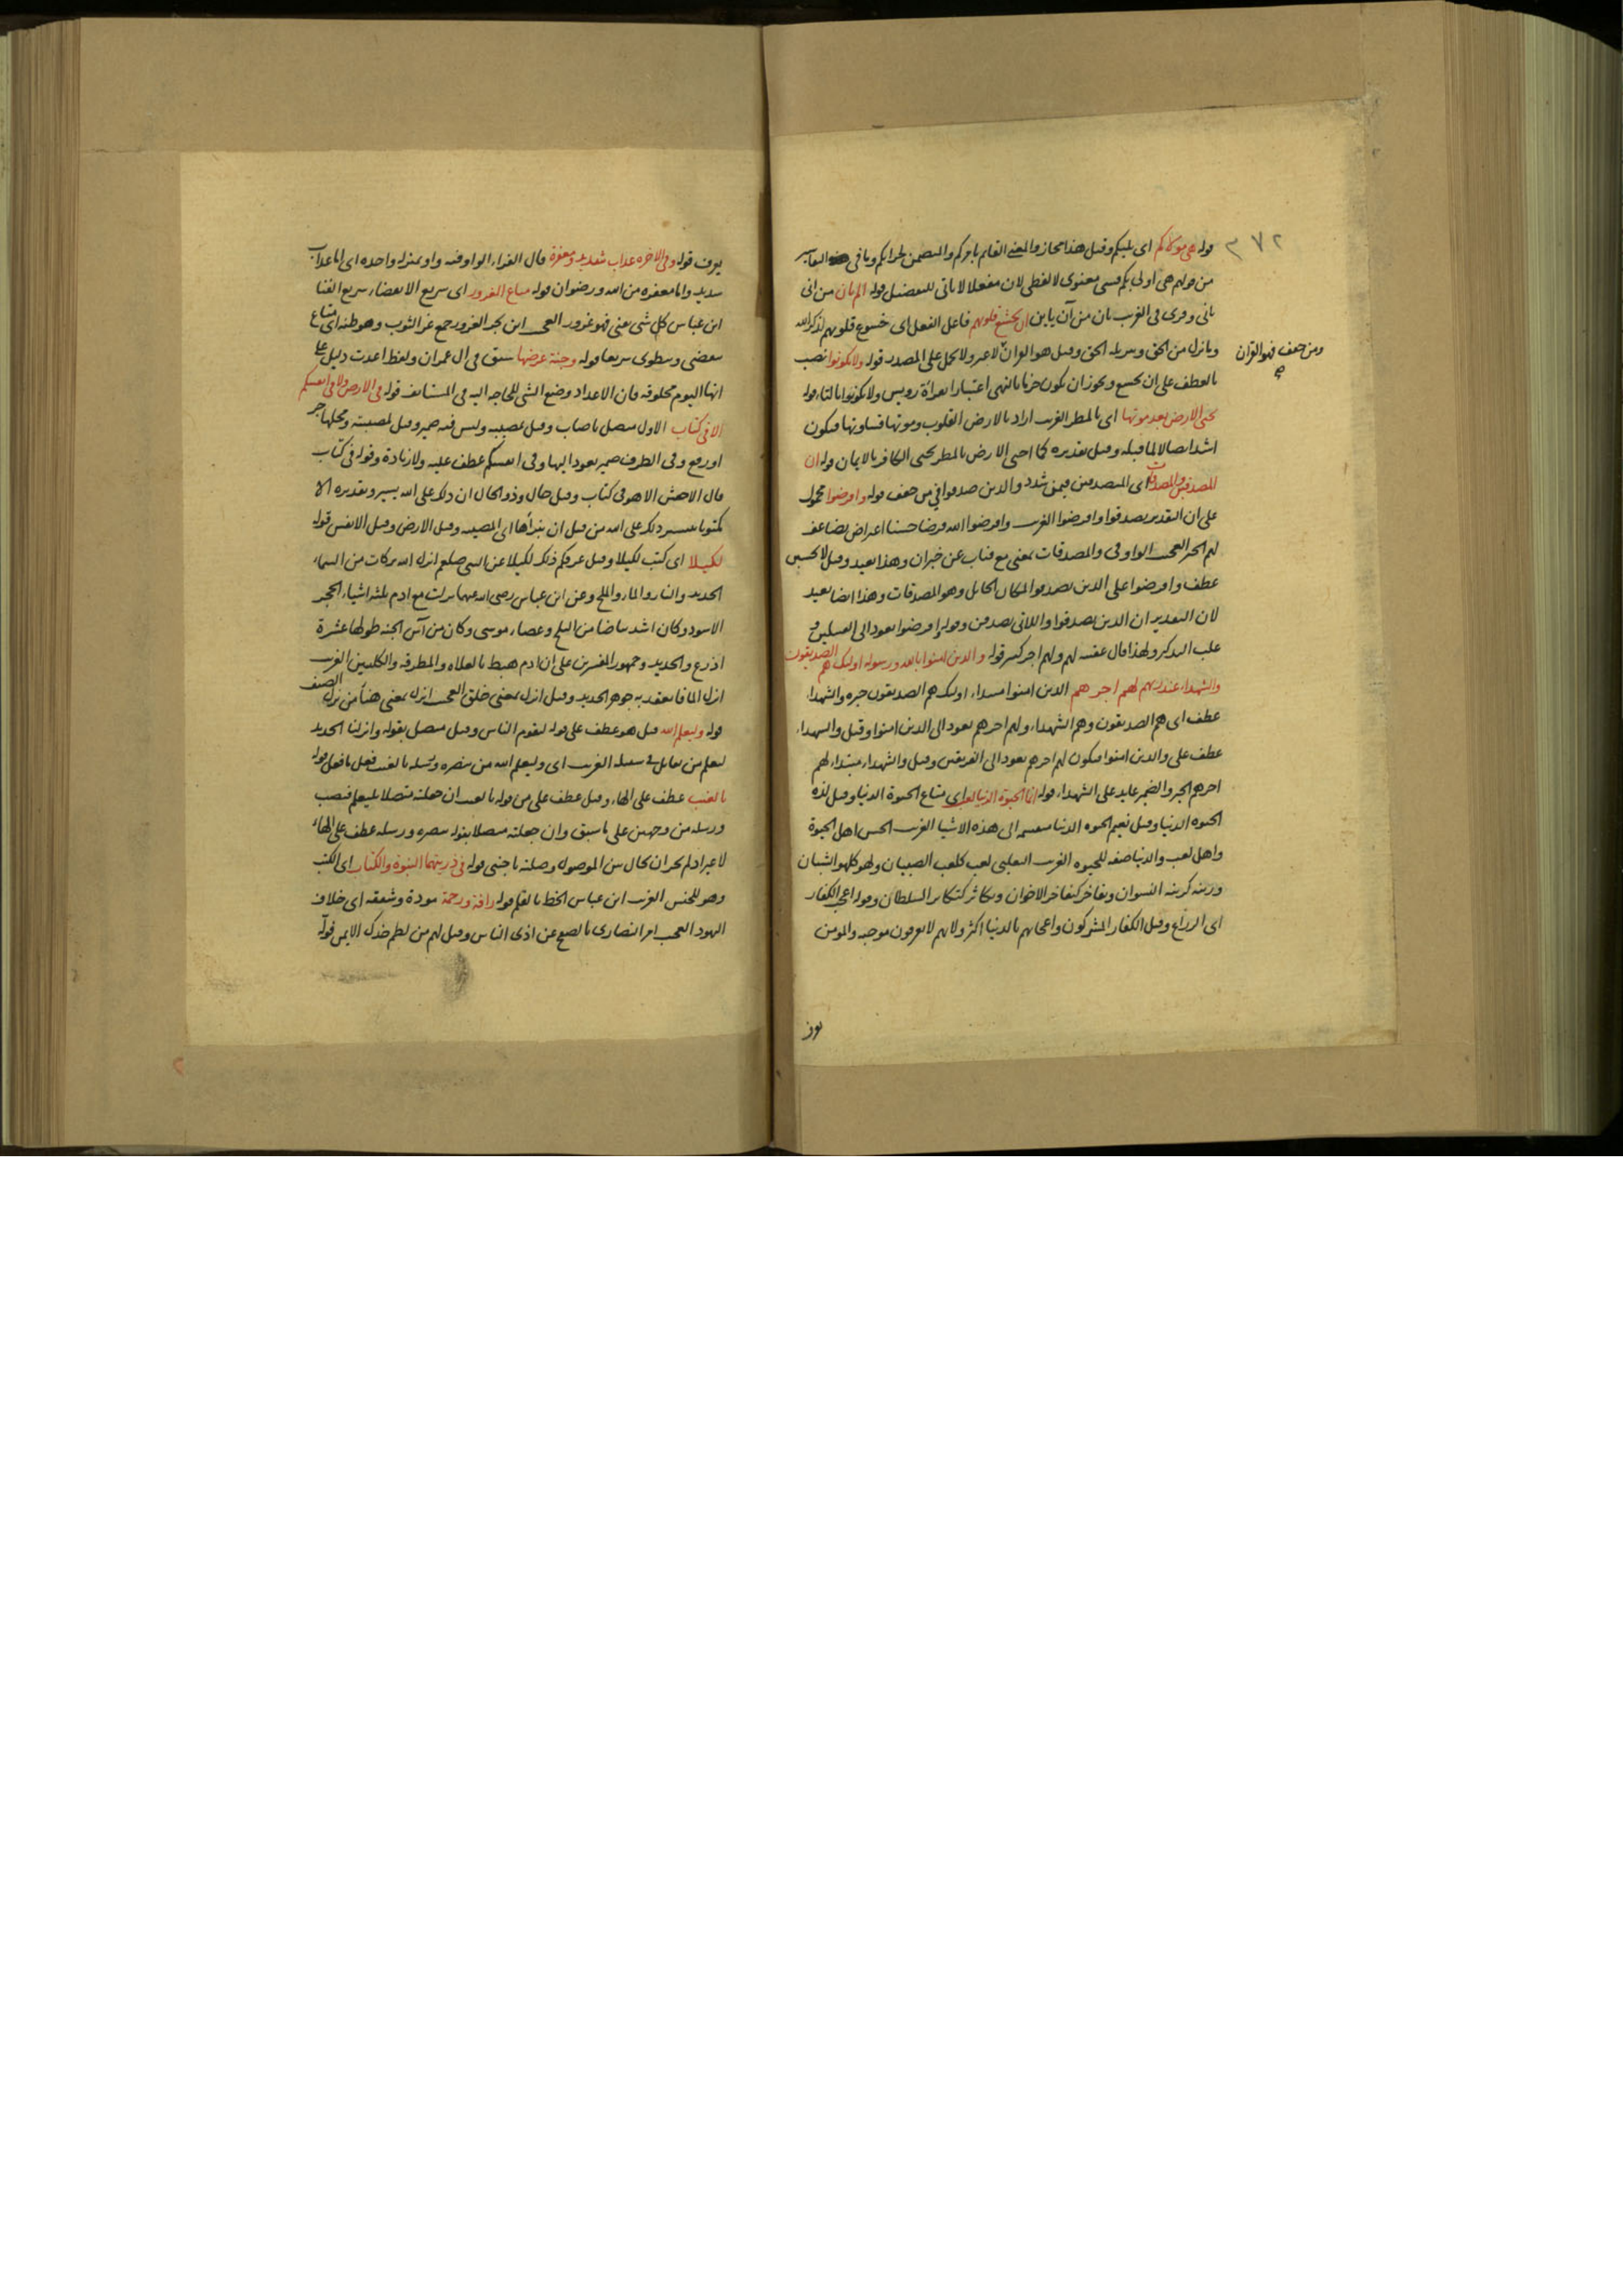 ٣٧٢
قوله هي مولاكم اى يليكم وقيل هذا مجاز والمعنى القائم بامركم والمتضمن لجزائكم وما فى التفاسير
من قولهم هى اولى بكم فسى معنوى لا لفظى لان مفعلا لا ياتى للتفضيل قوله الم يان من انى
يانى وقرى فى الغريب يان من آن يايين ان تخشع قلوبهم فاعل الفعل اى خشوع قلوبهم لذكر الله
وما نزل من الحق وتنزيله الحق وقيل هو القرآن لا غير ولا محل على المصدر قوله ولا يكونوا نصب
ومن خفف فهو القران
بالعطف على ان تخشع ويجوز ان يكون جزما بالنهى اعتبارا بقراة رويس ولا تكونوا بالتاء قوله
يحيى الارض بعد موتها اى بالمطر الغريب اراد بالارض القلوب وموتها قساوتها فيكون
اشد اتصالا لما قبله وقيل تقديره كما احيى الارض بالمطر يحيى الكافر بالايمان قوله ان
المصدقين والمصدقات اى المتصدقين فيمن شدد والذين صدقوا فى من خفف قوله واقرضوا محمول
على ان التقدير تصدقوا واقرضوا الغريب واقرضوا الله قرضا حسنا اعراض يضاعف
لهم الخبر العجيب الواو فى والمصدقات بمعنى مع فناب عن خبر ان وهذا بعيد وقيل لا يحسن
عطف واقرضوا على الذين تصدقوا لمكان الحايل وهو المصدقات وهذا ايضا بعيد
لان التقدير ان الذين تصدقوا واللاتى تصدقن وقوله اقرضوا يعود الى القبيلين و
غلب التذكير ولهذا قال عقبه لهم ولهم اجر كبير قوله والذين امنوا بالله ورسوله اوليك هم الصديقون
والشهداء عند ربهم لهم اجرهم الذين امنوا مبتداء اوليك هم الصديقون خبره والشهداء
عطف اى هم الصديقون وهم الشهداء ولهم اجرهم يعود الى الذين امنوا وقيل والشهداء
عطف على والذين امنوا فيكون لهم اجرهم يعود الى الفريقين وقيل والشهداء مبتداء لهم
اجرهم الخبر والضمير عايد على الشهداء قوله انما الحيوة الدنيا لعب اى متاع الحيوة الدنيا وقيل لذة
الحيوة الدنيا وقيل نعيم الحيوة الدنيا منقسمة الى هذه الاشيا الغريب الحسن اهل الحيوة
واهل لعب والدنيا صفة للحيوة الغريب الثعلبى لعب كلعب الصبيان ولهو كلهو الشبان
وزينة كزينة النسوان وتفاخر كتفاخر الاخوان وتكاثر كتكاثر السلطان وقوله اعجب الكفار
اى الزراع وقيل الكفار المشركون واعجابهم بالدنيا اكثر ولانهم لا يعرفون موجبه والمومن
يعرف
يعرف قوله وفى الاخرة عذاب شديد ومغفرة قال الفراء الواو فيه واو بمنزلة واحدة اى اما عذاب
شديد واما مغفرة من الله ورضوان قوله متاع الغرور اى سريع الانقضاء سريع الفنا
ابن عباس كل شى عنى فهو غرور العجيب ابن بحر الغرور جمع غر الثوب وهو طيه اى متاع
ينقضى وينطوى سريعا قوله وجنة عرضها سبق فى ال عمران ولفظ اعدت دليل على
انها اليوم مخلوقة فان الاعداد وضع الشى للحاجة اليه فى المستانف قوله فى الارض ولا فى انفسكم
الا فى كتاب الاول متصل باصاب وقيل بمصيبة وليس فيه ضمير وقيل لمصيبة ومحلها جر
او رفع وفى الظرف ضمير يعود اليها وفى انفسكم عطف عليه ولا زيادة وقوله فى كتاب
قال الاخفش الا هو فى كتاب وقيل حال وذو الحال ان ذلك على الله يسير وتقديره الا
مكتوبا يسير ذلك على الله من قبل ان نبرأها اى المصيبة وقيل الارض وقيل الانفس قوله
لكيلا اى كتب لكيلا وقيل عرفكم ذلك لكيلا عن النبى صلعم انزل الله بركات من السماء
الحديد والنار والماء والملح وعن ابن عباس رضى الله عنهما نزلت مع ادم ثلثة اشياء الحجر
الاسود وكان اشد بياضا من الثلج وعصاء موسى وكان من آس الجنة طولها عشرة
اذرع والحديد وجمهور المفسرين على ان ادم هبط بالعلاة والمطرقة والكلبتين الغريب
انزل الماء فانعقد به جوهر الحديد وقيل انزل بمعنى خلق العجيب انزل بمعنى هيأ من نزل الضيف
قوله وليعلم الله قيل هو عطف على قوله ليقوم الناس وقيل متصل بقوله وانزلنا الحديد
ليعلم من يقاتل فى سبيله الغريب اى وليعلم الله من ينصره ورسله بالغيب فعل ما فعل قوله
بالغيب عطف على الهاء وقيل عطف على من قوله بالغيب ان جعلته متصلا بليعلم فنصب
ورسله من وجهين على ما سبق وان جعلته متصلا بقوله ينصره ورسله عطف على الهاء
لا غير اذ لم يجز ان يحال بين الموصول وصلته باجنبى قوله فى ذريتهما النبوة والكتاب اى الكتب
وهو للجنس الغريب ابن عباس الخط بالقلم قوله رافة ورحمة مودة وشفقة اى خلاف
اليهود العجيب امر النصارى بالصفح عن اذى الناس وقيل لهم من لطم خدك الايمن فوله